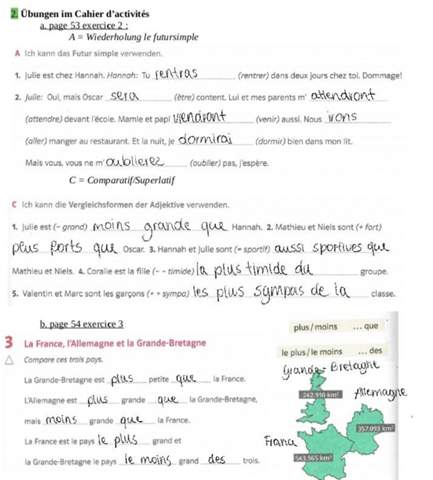 2. Übungen im Cahier d'activités
a. page 53 exercice 2 :
A = Wiederholung le futursimple
A Ich kann das Futur simple verwenden.
1. Julie est chez Hannah. Hannah: Tu rentras (rentrer) dans deux jours chez toi. Dommage!
2. Julie: Oui, mais Oscar sera (être) content. Lui et mes parents m' attendront
(attendre) devant l'école. Mamie et papi viendront (venir) aussi. Nous irons
(aller) manger au restaurant. Et la nuit, je dormirai (dormir) bien dans mon lit.
Mais vous, vous ne m' oublierez (oublier) pas, j'espère.
C = Comparatif/Superlatif
C Ich kann die Vergleichsformen der Adjektive verwenden.
1. Julie est (– grand) moins grande que Hannah. 2. Mathieu et Niels sont (+ fort)
plus forts que Oscar. 3. Hannah et Julie sont (= sportif) aussi sportives que
Mathieu et Niels. 4. Coralie est la fille (– – timide) la plus timide du groupe.
5. Valentin et Marc sont les garçons (+ + sympa) les plus sympas de la classe.
b. page 54 exercice 3
plus / moins ... que
3 La France, l'Allemagne et la Grande-Bretagne
le plus / le moins ... des
Comparez ces trois pays.
Grande-Bretagne
La Grande-Bretagne est plus petite que la France.
242.910 km²
Allemagne
L'Allemagne est plus grande que la Grande-Bretagne,
mais moins grande que la France.
357.093 km²
La France est le pays le plus grand et
France
la Grande-Bretagne le pays le moins grand des trois.
543.965 km²